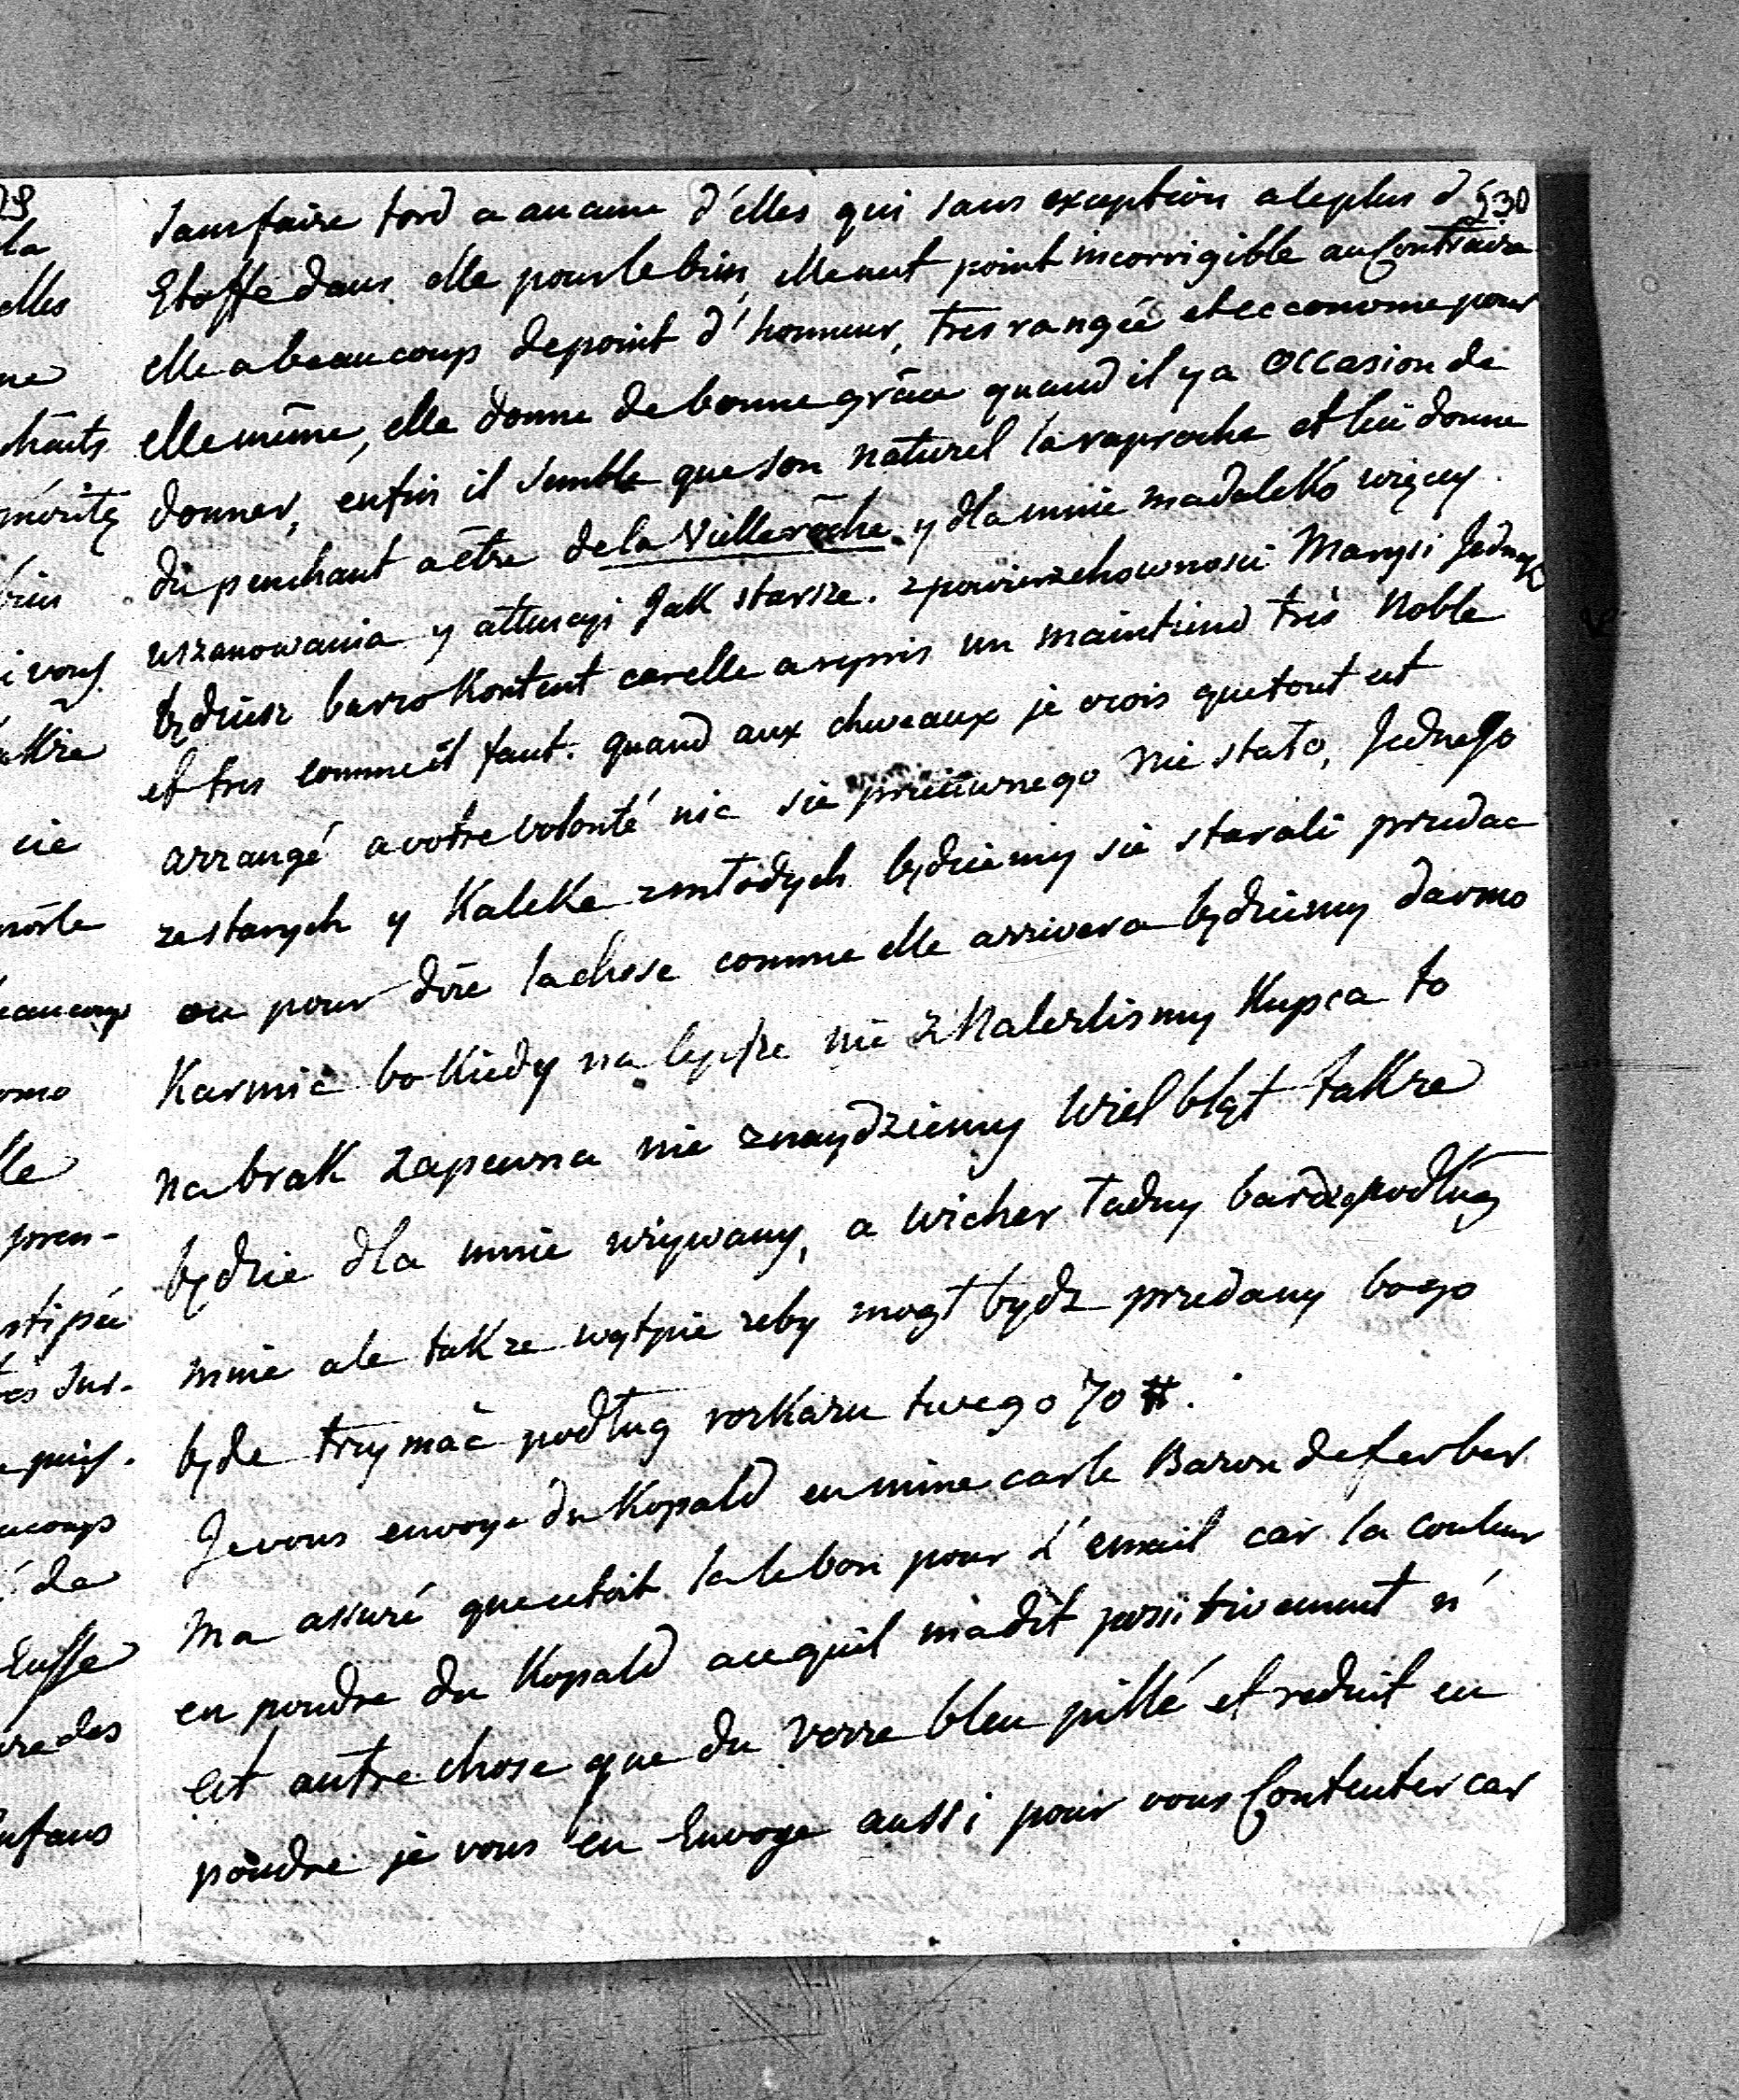 530
sans faire tord a aucune d'elles qui sans exception a le plus d'
Etoffe dans elle pour le bien, elle n'est point incorrigible au Contraire
elle a beaucoup de point d'honneur, tres rangée et ecconome pour
elle même, elle donne de bonne grâce quand il y a occasion de
donner, enfin il semble que son naturel la raproche et lui donne
du penchant a être de la Vielle roche. y dla mnie ma daleko więcy
uszanowania y attencyi Jak starsze. z powierzchownosci Marysi Jednak
będziesz barzo Kontent car elle a repris un maintiend très Noble
et tres comme il faut. quand aux cheveaux je crois que tout est
arrangé a votre volonté nic sie przeciwnego nie stało, Jednego
ze starych y Kaleke z młodych będziemy sie starali przedac
ou pour dire la chose comme elle arrivera będziemy darmo
Karmić bo Kiedy na lepsze nie znalezlismy Kupca to
na brak zapewna nie znaydziemy Wielbłąt takze
będzie dla mnie używany, a wicher ładny bardzo podług
mnie ale takze wątpie zeby mogł bydz przedany bo go
będe trzymać podług rozkazu twego 70 #.
Je vous envoye du Kopald en mine car le Baron de ferber
Ma assuré que cetoit la le bon pour L'email car la couleur
en poudre du Kopald a ce quil m'a dit possitivement n'
est autre chose que du verre bleu pillé et reduit en
poudre je vous en Envoye aussi pour vous Contenter car